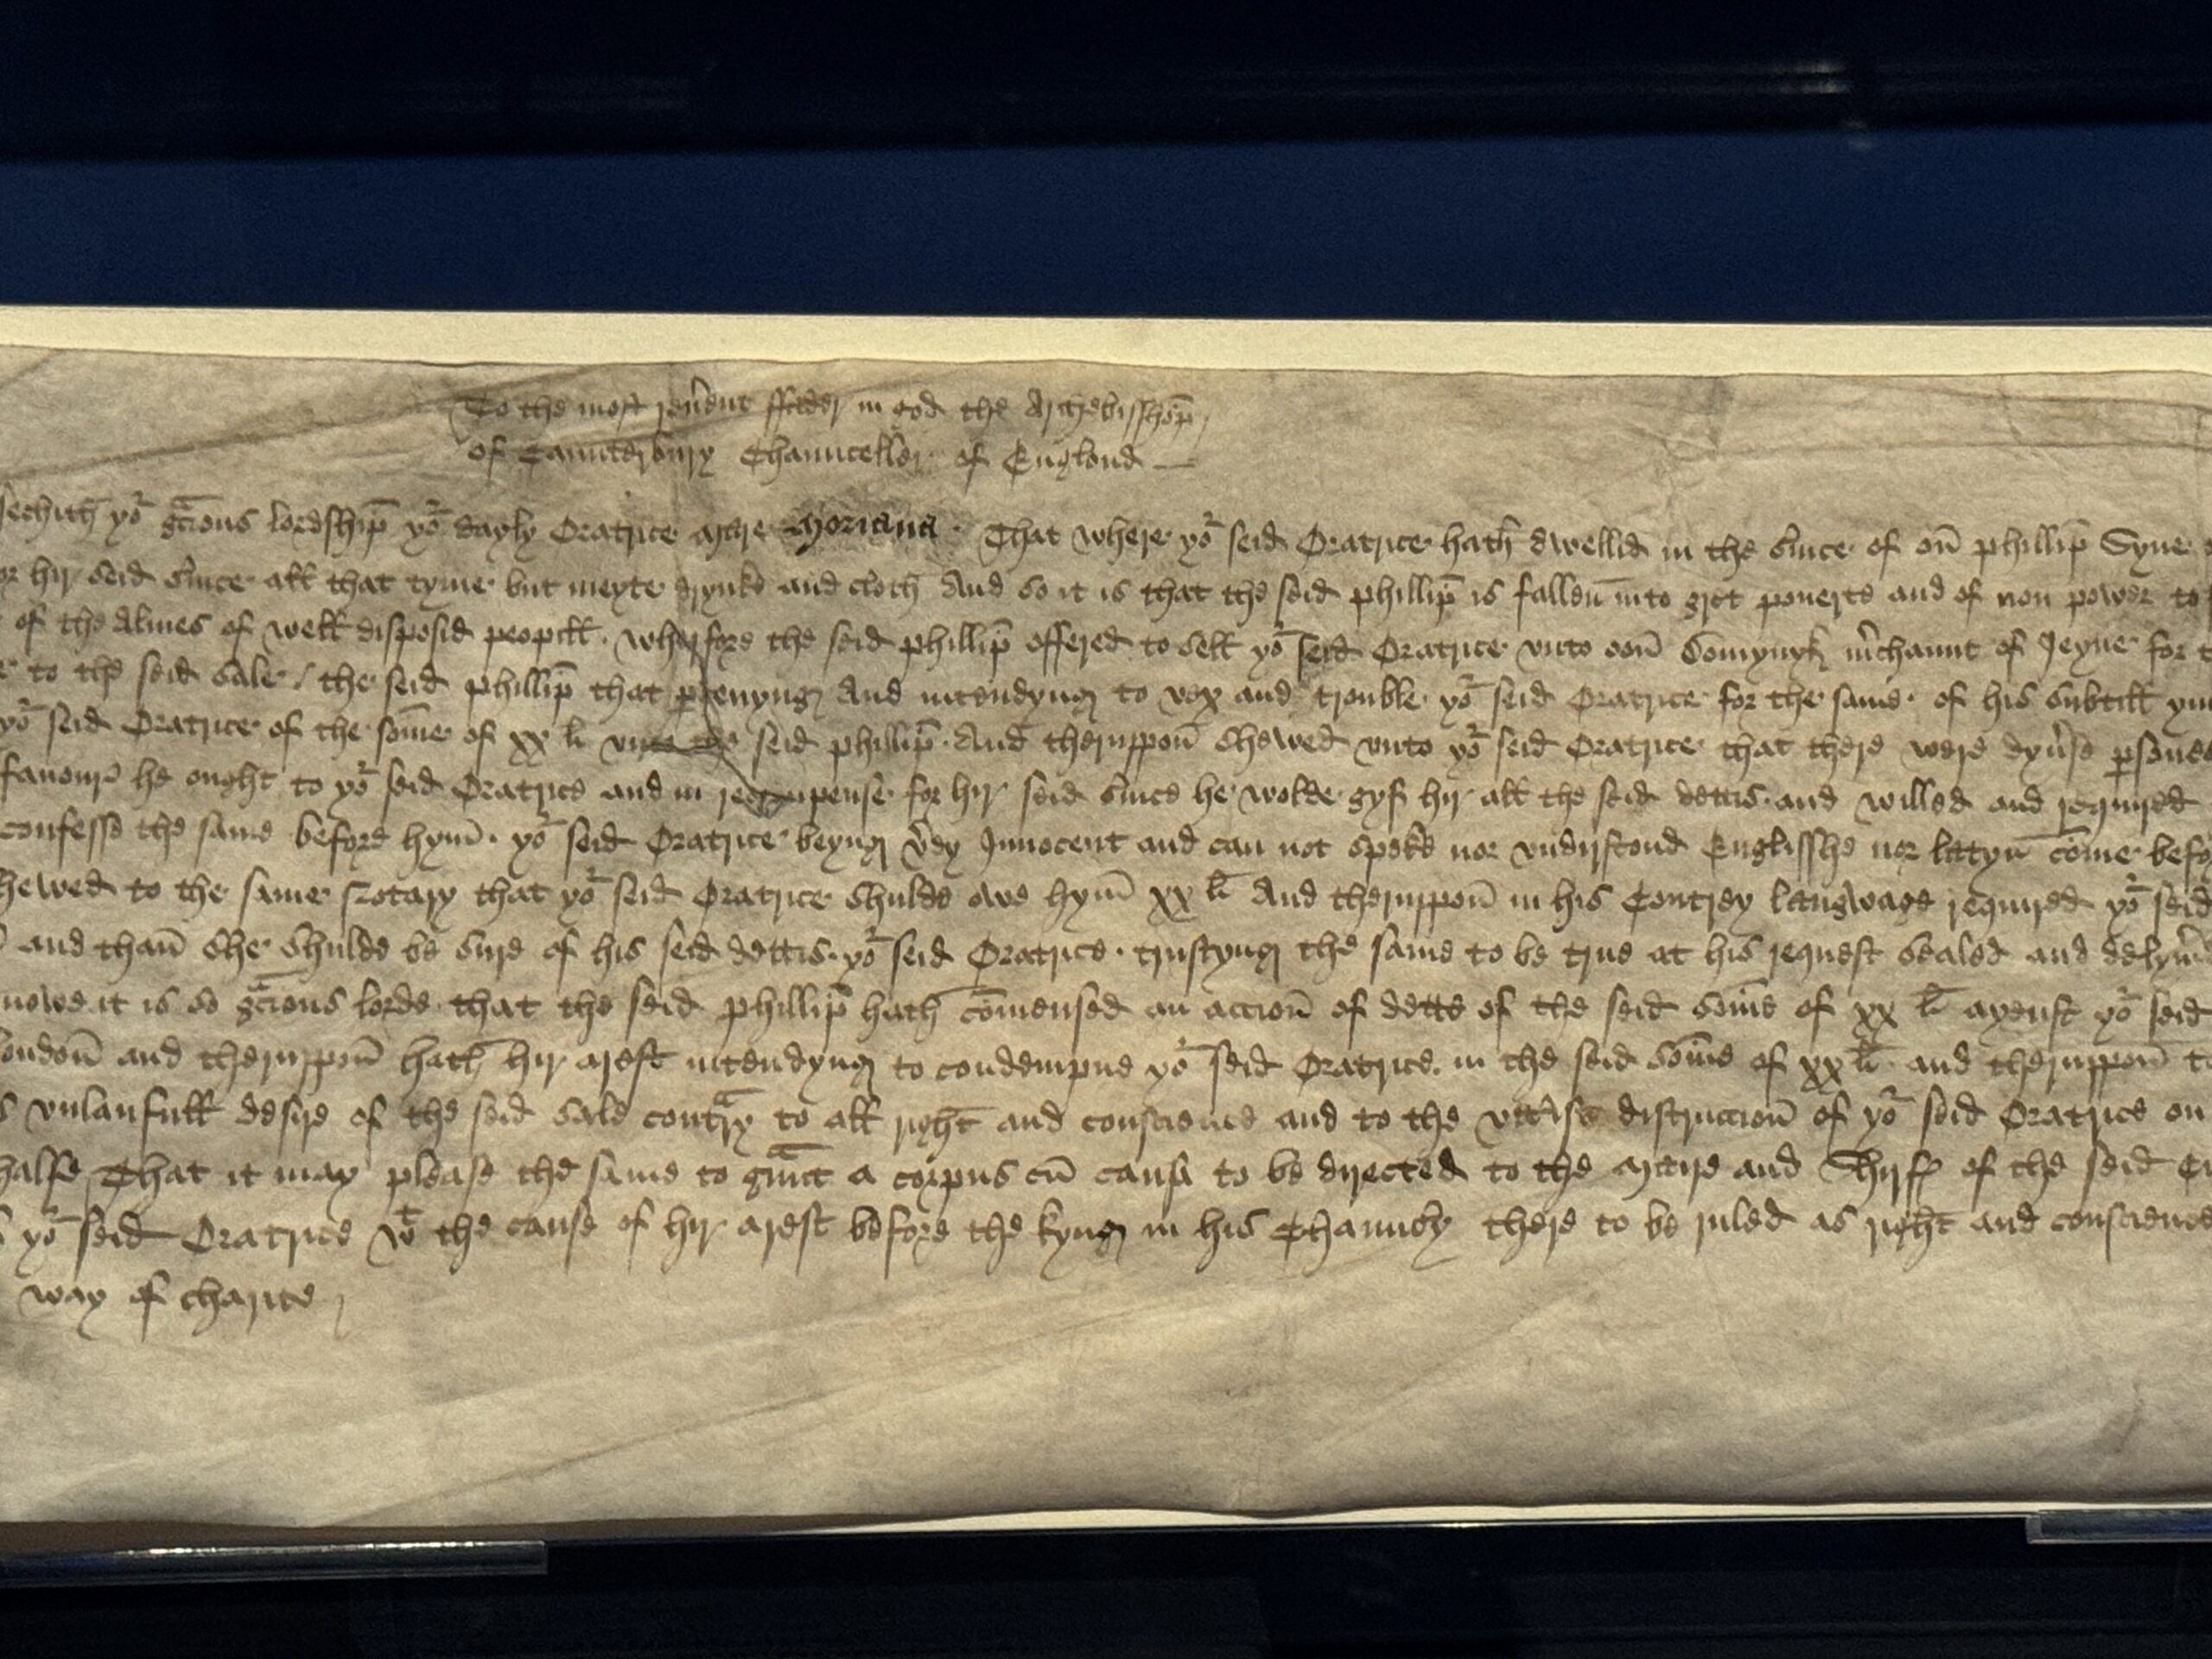 To the most reu'ent ffader in god the Archebisshop
of Caunterbury Chaunceller of Englond
sechith yor gracious lordship yor dayly Oratrice Marie Moriana. That where yor seid Oratrice hath dwellid in the s'uice of on phillip Syne
or hir seid s'uice all that tyme but meyte drynke and cloth And so it is that the seid phillip is fallen into gret pouerte and of non power to
of the Almes of well disposid peopill. wherfore the seid phillip offered to sell yor seid Oratrice vnto oon Domynyk m'chaunt of Jeyne for
to the seid sale / the seid phillip that p'ceyuyng And intendyng to vex and trouble yor seid Oratrice for the same. of his subtill
yor seid Oratrice of the some of xx li vnto the seid phillip. And theruppon shewed vnto yor seid Oratrice that there were dyu'se persones
fauour he ought to yor seid Oratrice and in recumpense for hir seid s'uice he wolde gyf hir all the seid dettis. and willed and required
confesse the same before hym. yor seid Oratrice beyng v'ey Innocent and can not speke nor vndirstond Englisshe nor latyn come befo
hewed to the same Notary that yor seid Oratrice shulde owe hym xx li And theruppon in his Contrey langwage required yor seid
and than she shulde be sure of his seid dettis. yor seid Oratrice. trustyng the same to be true at his request sealed and delyu'ed
nowe it is so gracious lorde that the seid phillip hath comensed an accion of dette of the seid some of xx li ayenst yor seid
london and theruppon hath hir arest intendyng to condempne yor seid Oratrice. in the seid some of xx li and theruppon to
s vnlaufull desire of the seid sale contrary to all right and conscience and to the vtt'ist distruccion of yor seid Oratrice on
halfe That it may please the same to graunt a corpus cu causa to be directed to the Maire and Shirfs of the seid Ci
yor seid Oratrice wt the cause of hir arest before the kyng in his Chauncery there to be ruled as right and conscience
way of charite